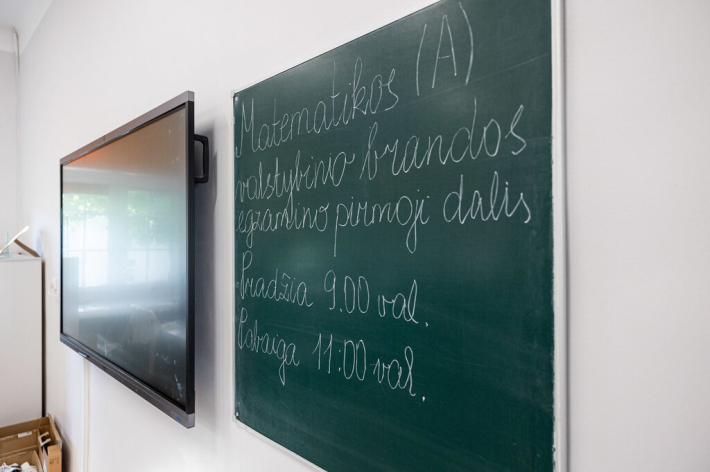 Matematikos (A)
valstybinio brandos
egzamino pirmoji dalis
Pradžia 9.00 val.
Pabaiga 11.00 val.